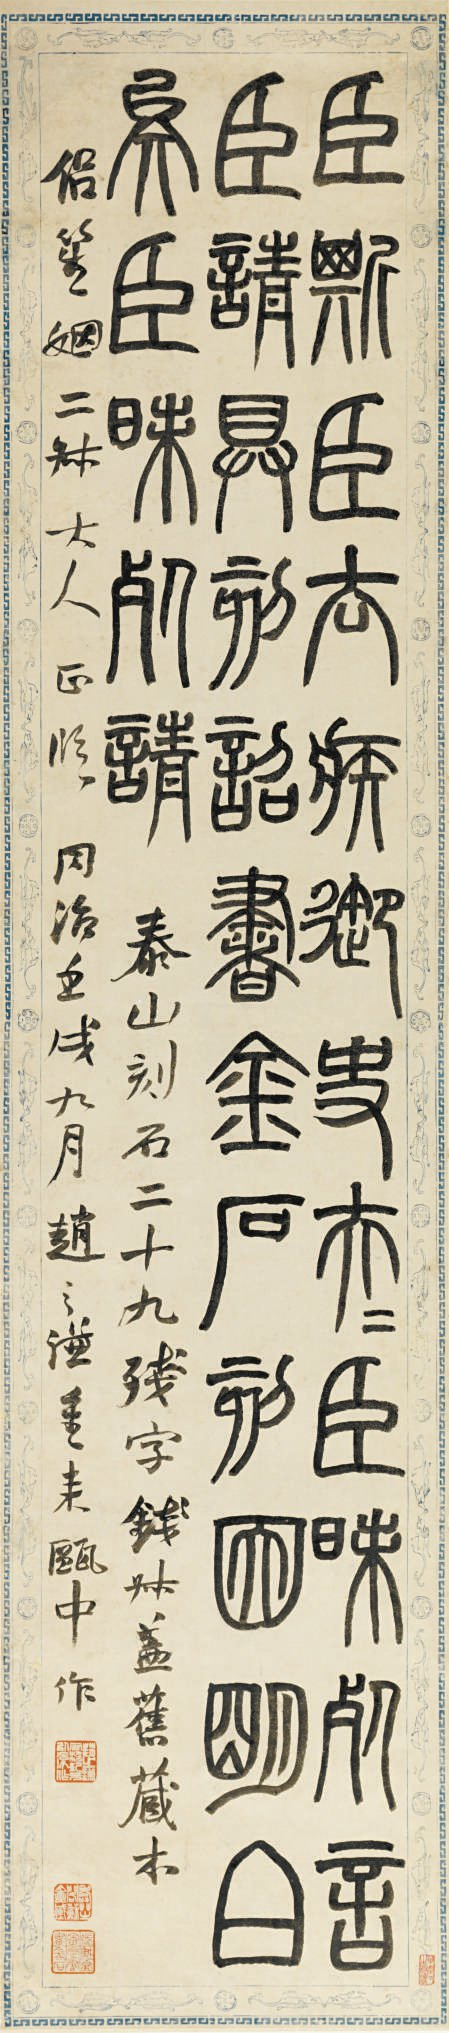 臣斯臣去疾御史夫〻臣昧死言
臣請具刻詔書金石刻因明白
矣臣昧死請
泰山刻石二十九殘字錢叔蓋舊藏本
侣笙姻二叔大人正臨 同治壬戌九月趙之謙重來甌中作